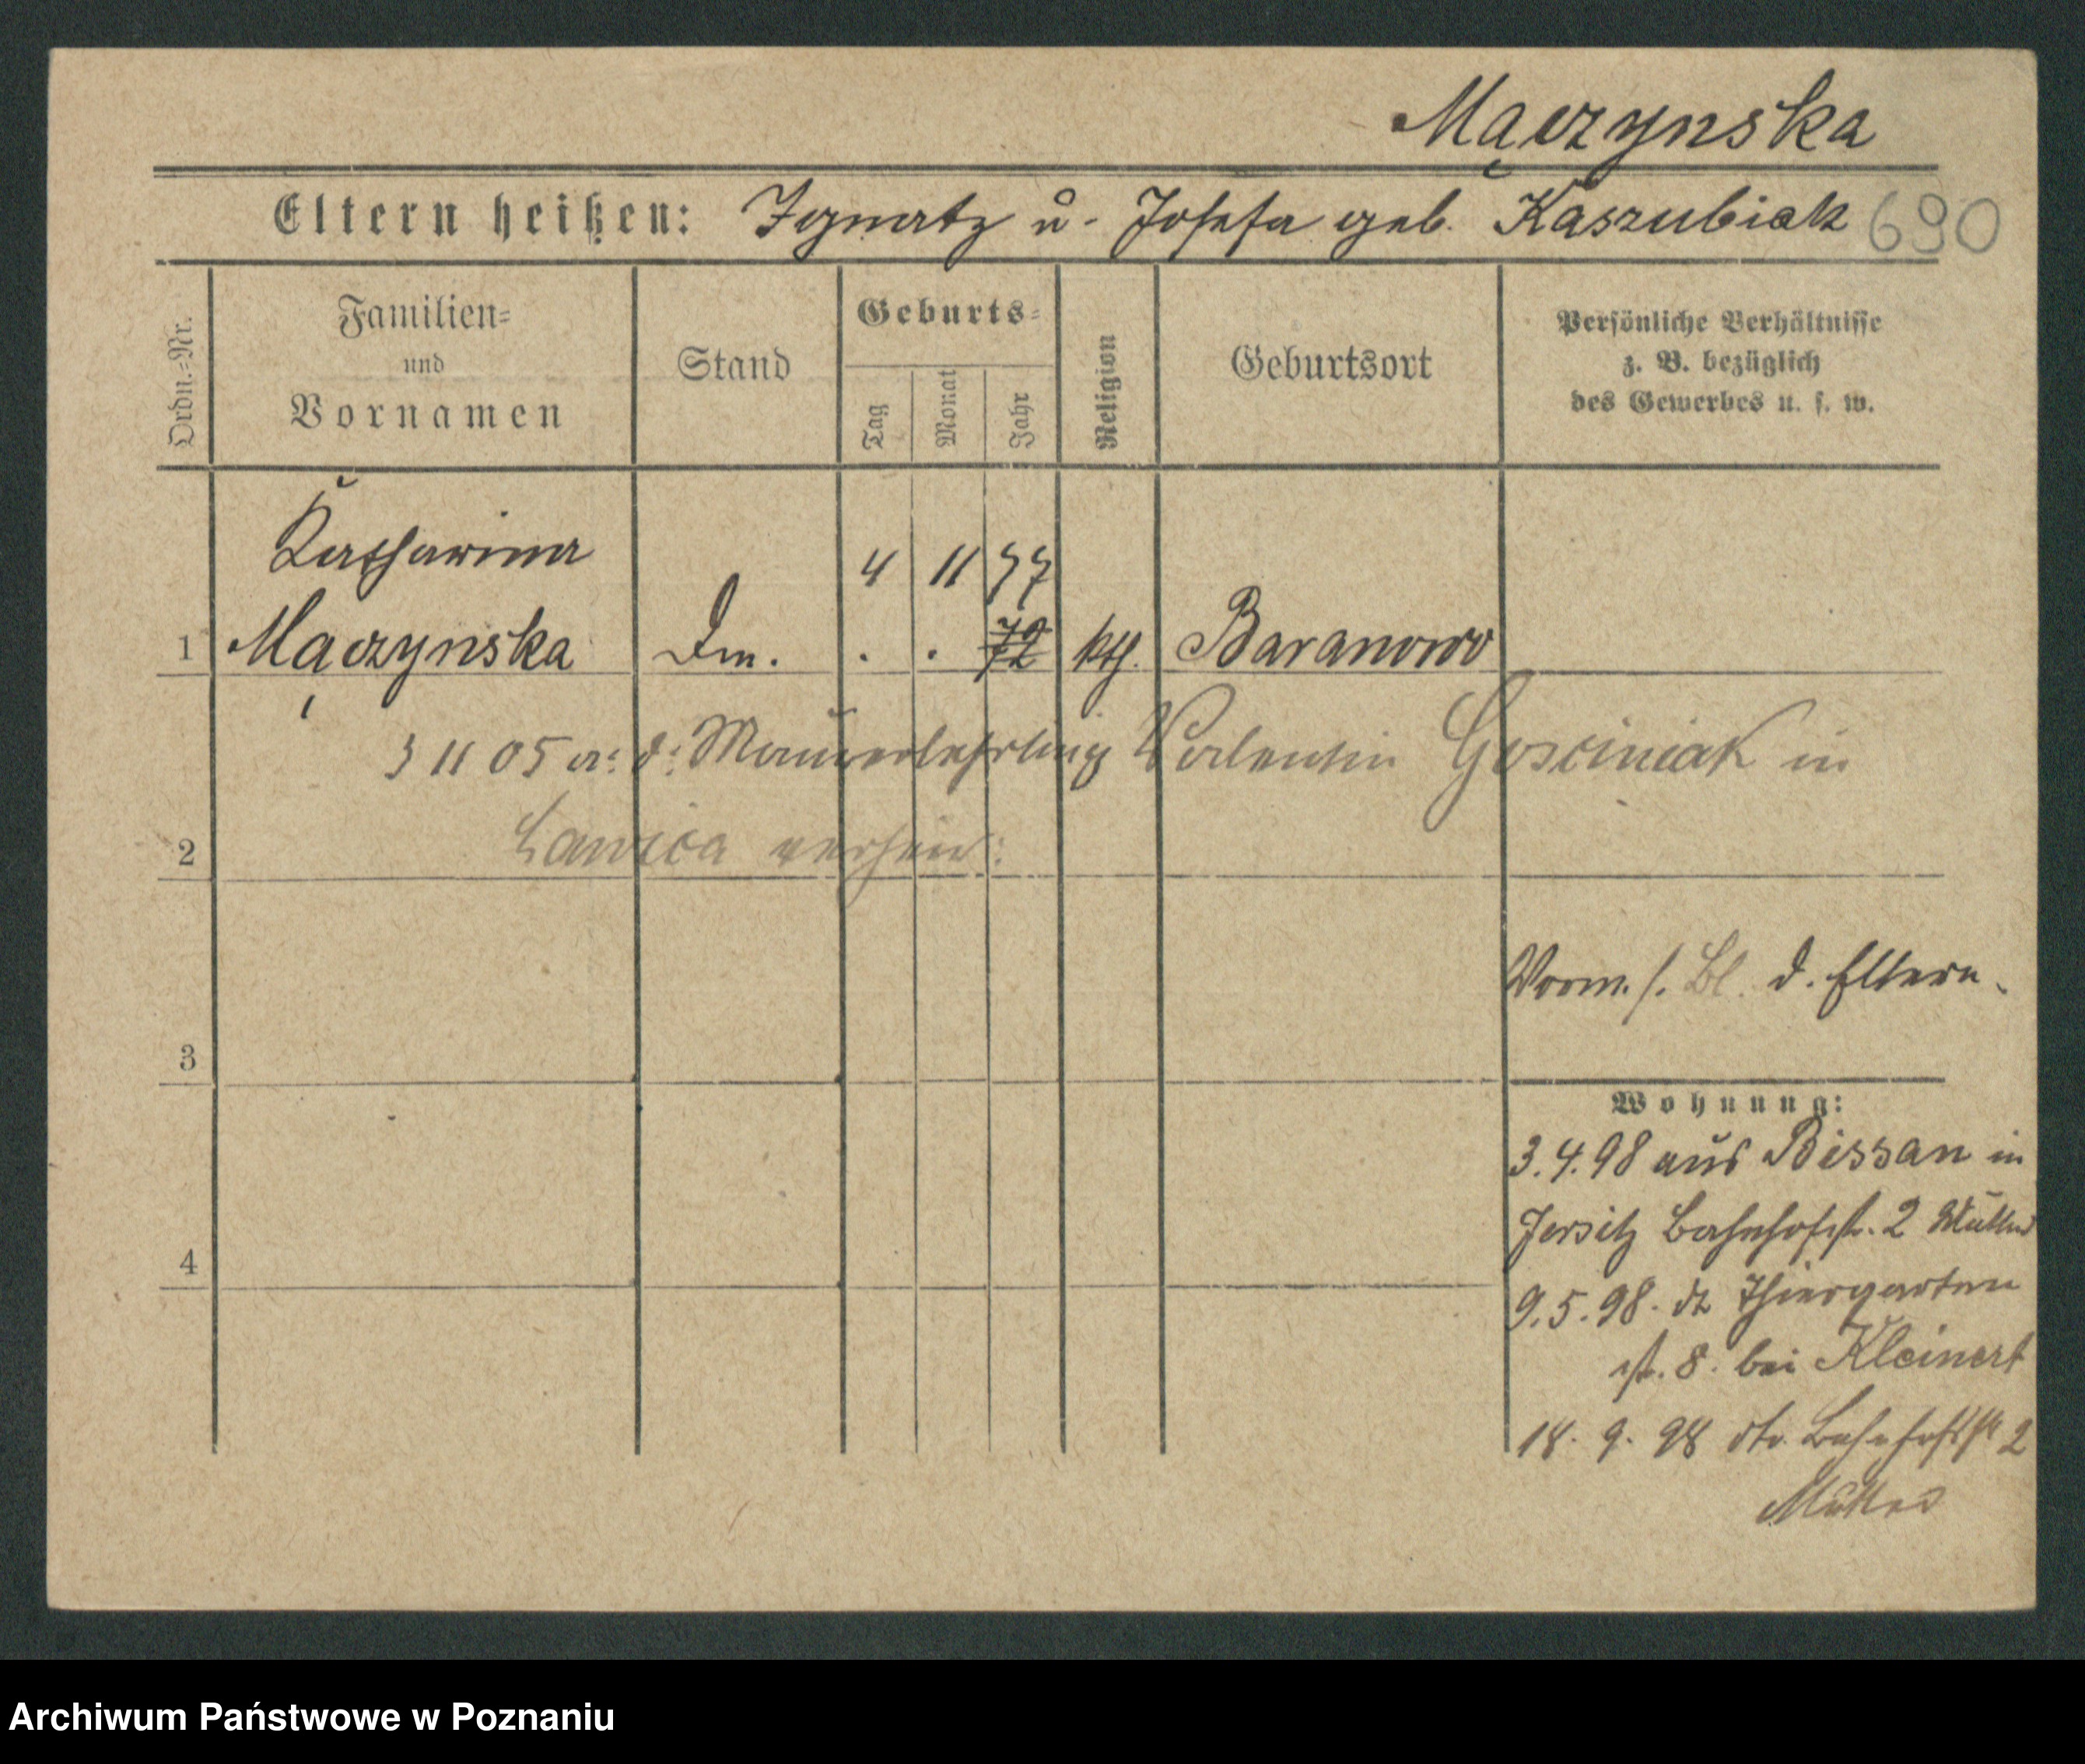 Mączynska
Eltern heißen: Ignatz u. Josefa geb. Kaszubiak 690
Ordn.=Nr.
Familien=
und
Vornamen
Stand
Geburts=
Tag
Monat
Jahr
Religion
Geburtsort
Persönliche Verhältnisse
z. B. bezüglich
des Gewerbes u. s. w.
Katharina 4 11 77
1 Mączynska Dm. . . 72 kth. Baranowo
3 11 05 a: d: Maurerlehrling Valentin Gosciniak in
2 Lawica verheir:
Vorm. s. Bl. d. Eltern.
3
Wohnung:
3.4.98 aus Bissan in
Jersitz Bahnhofst. 2
4
9.5.98. Thiergarten
st. 8. bei Kleinert
18. 9. 98 dto. Bahnhofst 2
Archiwum Państwowe w Poznaniu